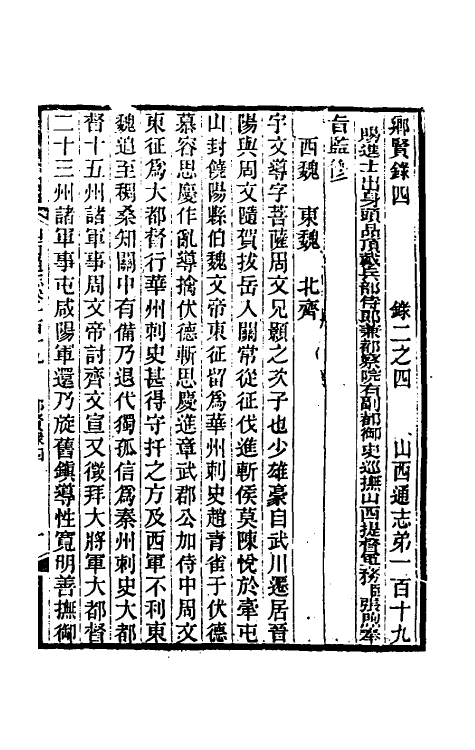 鄉賢錄四　錄二之四　山西通志第一百十九
賜進士出身頭品頂戴兵部侍郎兼都察院右副都御史巡撫山西提督鹽務臣張煦奉
旨監修
西魏　東魏　北齊
宇文導字菩薩周文兄顥之次子也少雄豪自武川遷居晉
陽與周文隨賀拔岳入關常從征伐進斬侯莫陳悅於牽屯
山封饒陽縣伯魏文帝東征留為華州刺史趙青雀于伏德
慕容思慶作亂導擒伏德斬思慶進章武郡公加侍中周文
東征為大都督行華州刺史甚得守扞之方及西軍不利東
魏追至稠桑知關中有備乃退代獨孤信為秦州刺史大都
督十五州諸軍事周文帝討齊文宣又徵拜大將軍大都督
二十三州諸軍事屯咸陽軍還乃旋舊鎮導性寬明善撫御